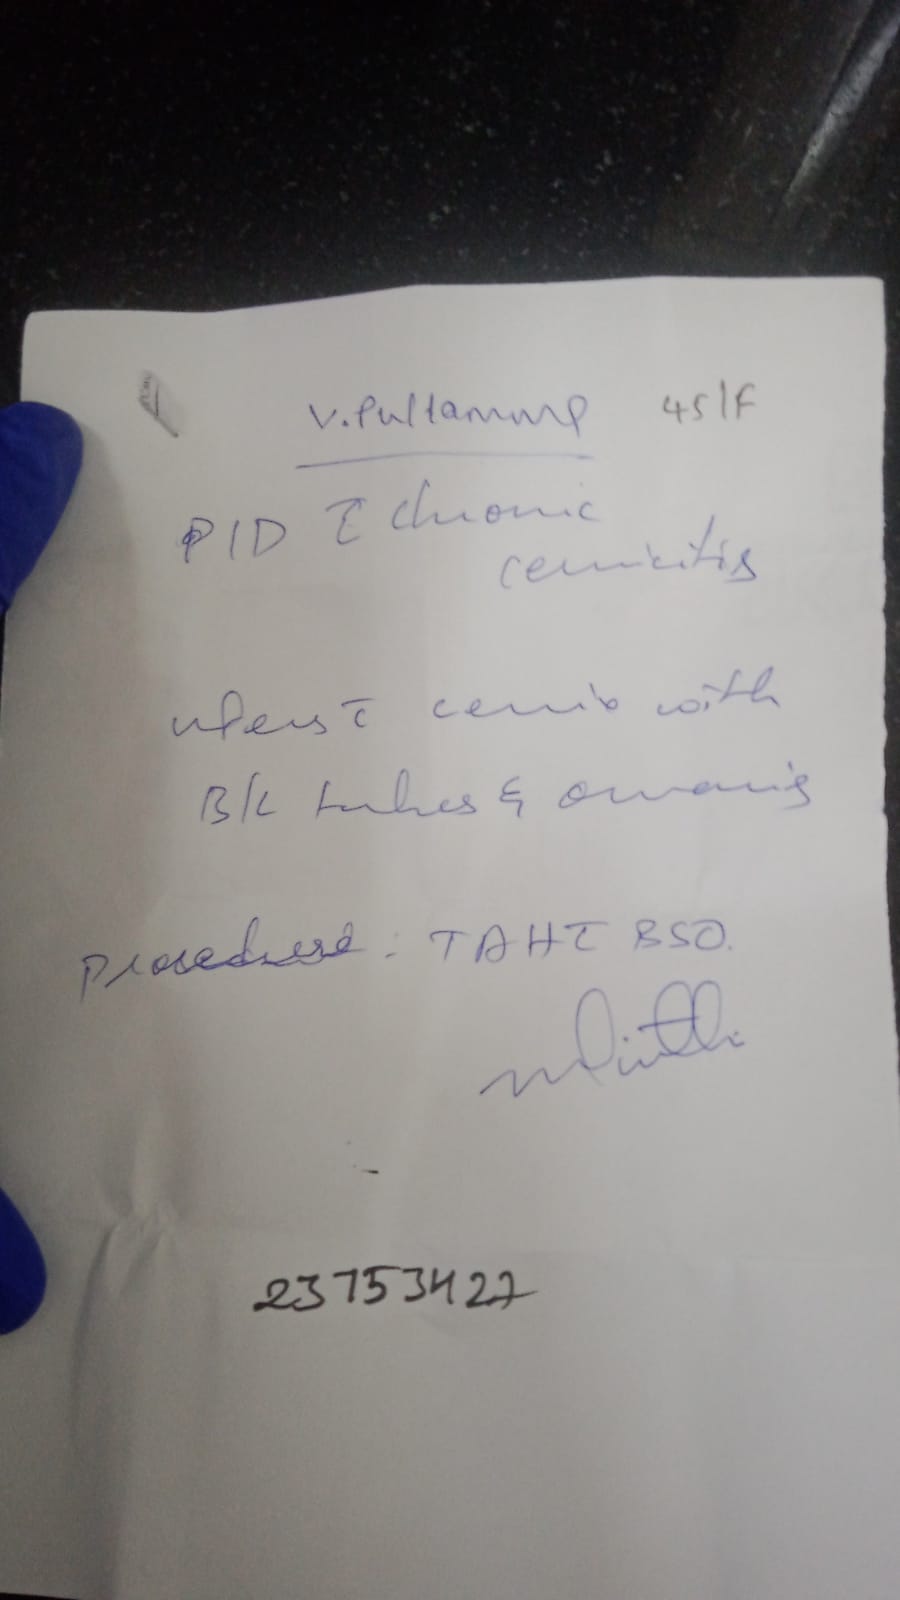 V. Pullamma 45/F
PID c̄ chronic
cervicitis
uterus c̄ cervix with
B/L tubes & ovaries
Procedure: TAH c̄ BSO.
23753427